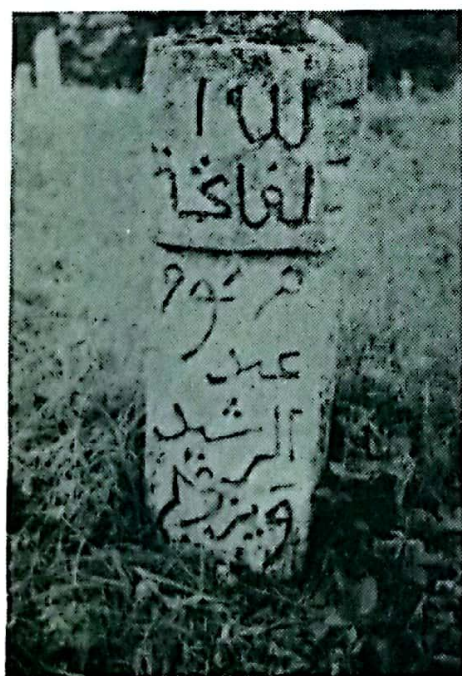 لله ا
لفاتحة
مرحوم
عبد
الرشيد